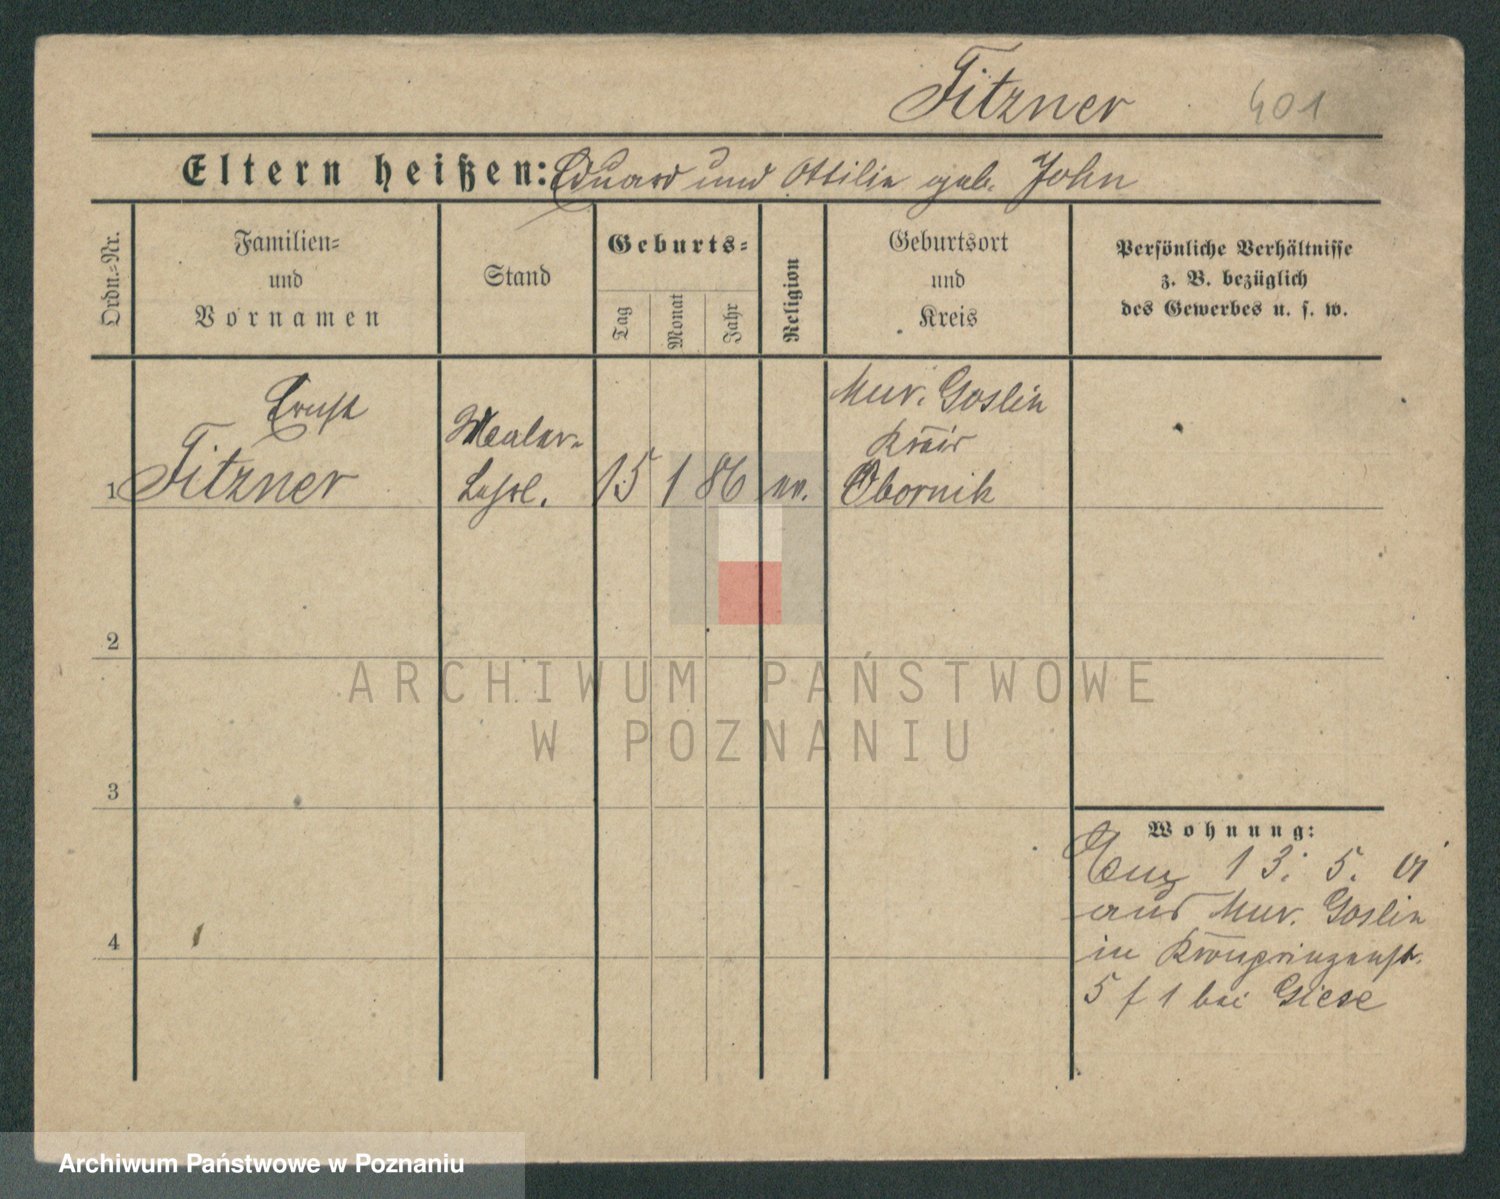 Fitzner 401
Eltern heißen: Eduard und Ottilie geb. John
Ordn.-Nr.
Familien-
und
Vornamen
Stand
Geburts-
Tag
Monat
Jahr
Religion
Geburtsort
und
Kreis
Persönliche Verhältnisse
z. B. bezüglich
des Gewerbes u. s. w.
1
Ernst
Fitzner
Maler-
Lehrl.
15 1 86 ev.
Mur. Goslin
Kreis
Obornik
2
3
4
Wohnung:
Zuz 13. 5. 01
aus Mur. Goslin
in Kronprinzenstr.
5 f 1 bei Giese
ARCHIWUM PAŃSTWOWE
W POZNANIU
Archiwum Państwowe w Poznaniu